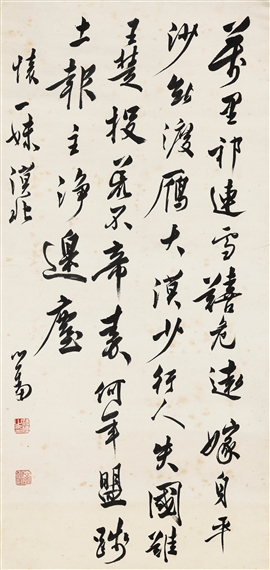 萬里祁連雪韉危遠嫁身平
沙無渡鴈大漠少行人失國難
王楚投荒不帝秦何年盟踐
土報主淨邊塵
懷一妹漠北
心畬